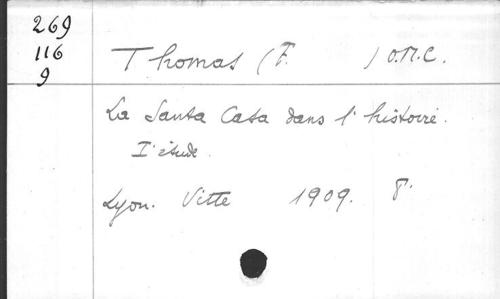 269
116
9
Thomas (F. ) O.M.C.
La Santa Casa dans l'histoire.
I. étude.
Lyon. Vitte 1909. 8°.